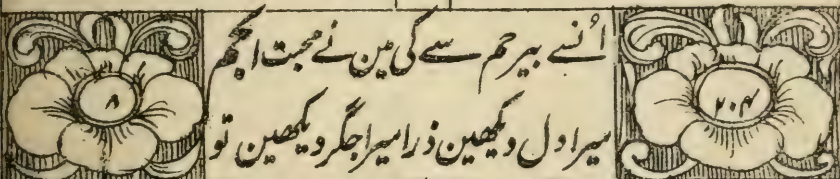 ۲۰۴
اُنسے بیرحم سے کی مین نے محبت انجم
میرا دل دیکھین ذرا میرا جگر دیکھین تو
۸